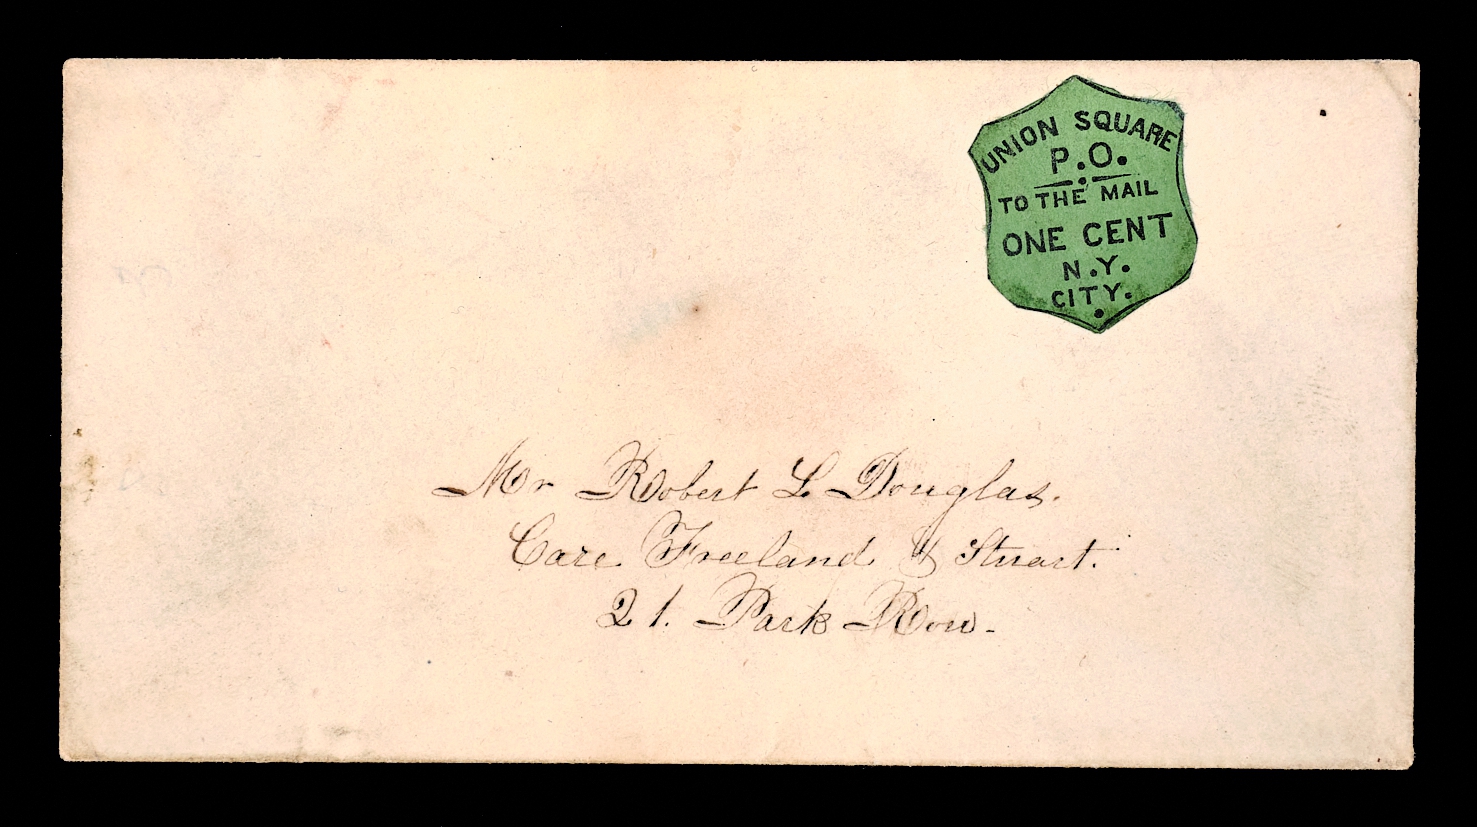 UNION SQUARE
P.O.
TO THE MAIL
ONE CENT
N.Y.
CITY.
Mr Robert L Douglas.
Care Freeland & Stuart.
21. Park Row.